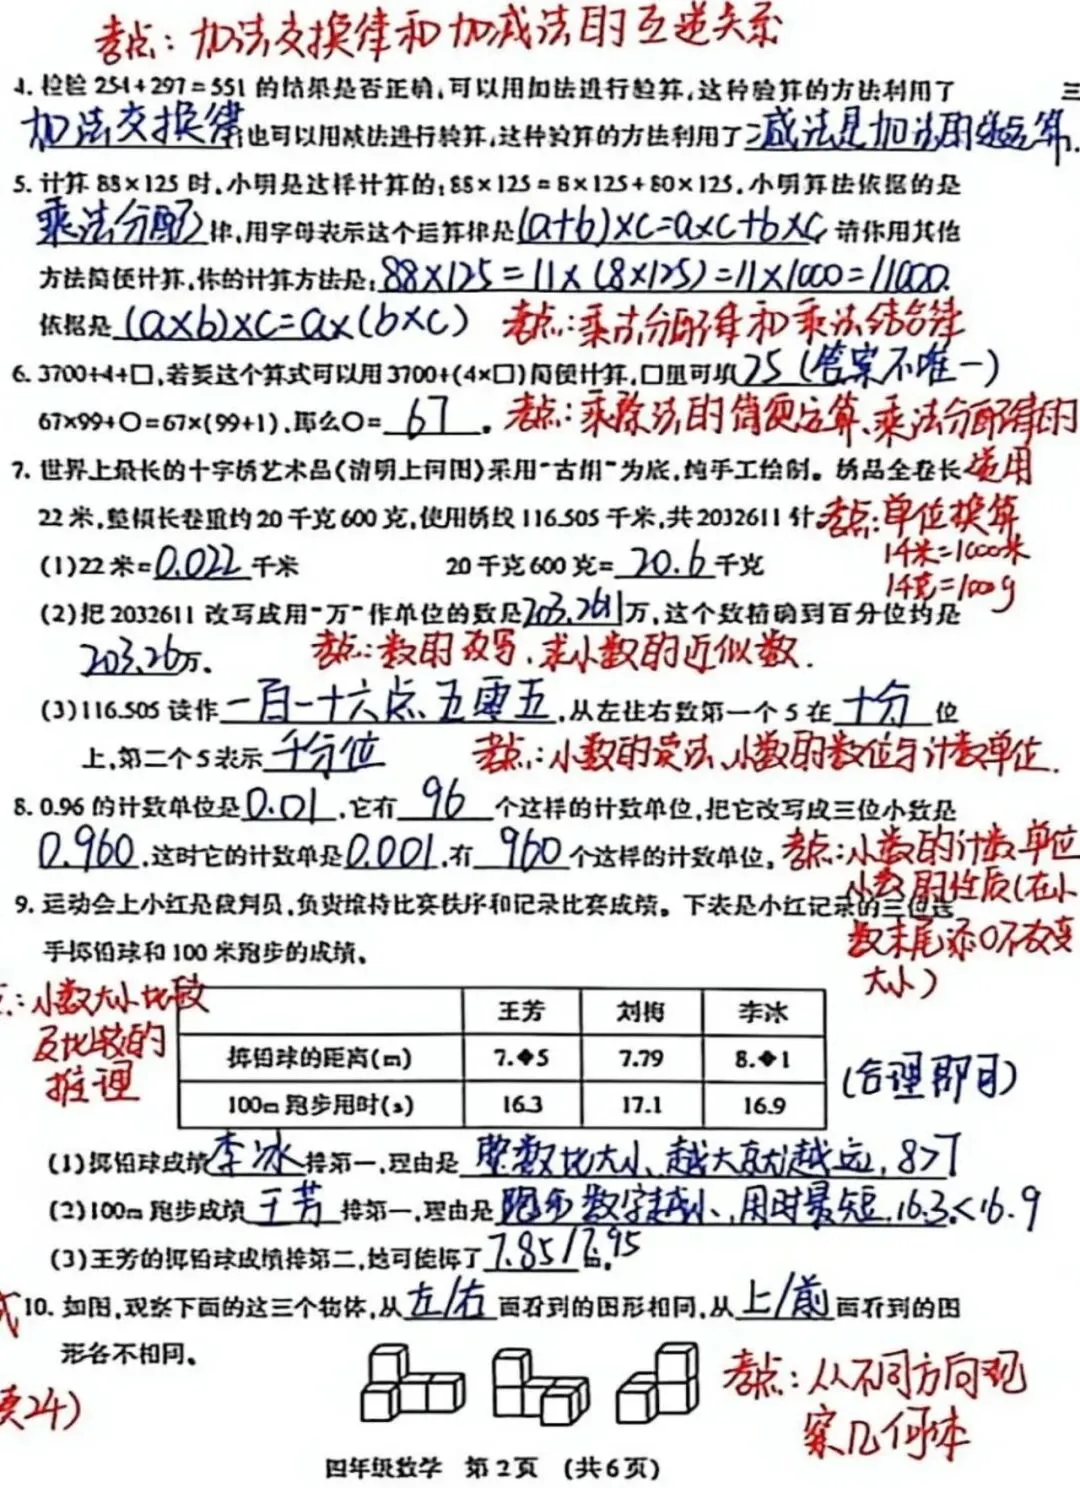 考点：加法交换律和加减法的互逆关系
4. 检验 254+297=551 的结果是否正确，可以用加法进行验算，这种验算的方法利用了 三
加法交换律，也可以用减法进行验算，这种验算的方法利用了减法是加法的逆运算.
5. 计算 88×125 时，小明是这样计算的：88×125=8×125+80×125，小明算法依据的是
乘法分配律，用字母表示这个运算律是(a+b)×c=a×c+b×c，请你用其他
方法简便计算，你的计算方法是：88×125=11×(8×125)=11×1000=11000.
依据是(a×b)×c=a×(b×c) 考点：乘法分配律和乘法结合律
6. 3700÷4÷□，若要这个算式可以用 3700÷(4×□)简便计算，□里可填25(答案不唯一)
67×99+○=67×(99+1)，那么○=67。 考点：乘除法的简便运算、乘法分配律的
运用
7. 世界上最长的十字绣艺术品《清明上河图》采用"古绢"为底，纯手工绘制。绣品全卷长
22 米，整幅长卷重约 20 千克 600 克，使用绣线 116.505 千米，共 2032611 针。考点：单位换算
1千米=1000米
1千克=1000g
(1)22 米=0.022千米 20 千克 600 克=20.6千克
(2)把 2032611 改写成用"万"作单位的数是203.2611万，这个数精确到百分位约是
203.26万。 考点：数的改写、求小数的近似数.
(3)116.505 读作一百一十六点五零五，从左往右数第一个 5 在十分位
上，第二个 5 表示千分位 考点：小数的读法、小数的数位与计数单位.
8. 0.96 的计数单位是0.01，它有96个这样的计数单位，把它改写成三位小数是
0.960，这时它的计数单是0.001，有960个这样的计数单位。 考点：小数的计数单位
小数的性质(在小
数末尾添0不改变
大小)
9. 运动会上小红是裁判员，负责维持比赛秩序和记录比赛成绩。下表是小红记录的三位选
手掷铅球和 100 米跑步的成绩。
：小数大小比较
及比较的
推理
王芳 刘梅 李冰
掷铅球的距离(m) 7.◆5 7.79 8.◆1
100m 跑步用时(s) 16.3 17.1 16.9
(合理即可)
(1)掷铅球成绩李冰排第一，理由是整数比大小、越大就越远，8>7
(2)100m 跑步成绩王芳排第一，理由是跑步数字越小、用时最短.16.3<16.9
(3)王芳的掷铅球成绩排第二，她可能掷了7.85/7.95。
10. 如图，观察下面的这三个物体，从左/右面看到的图形相同，从上/前面看到的图
形各不相同。
24)
考点：从不同方向观
察几何体
四年级数学 第 2 页 (共 6 页)